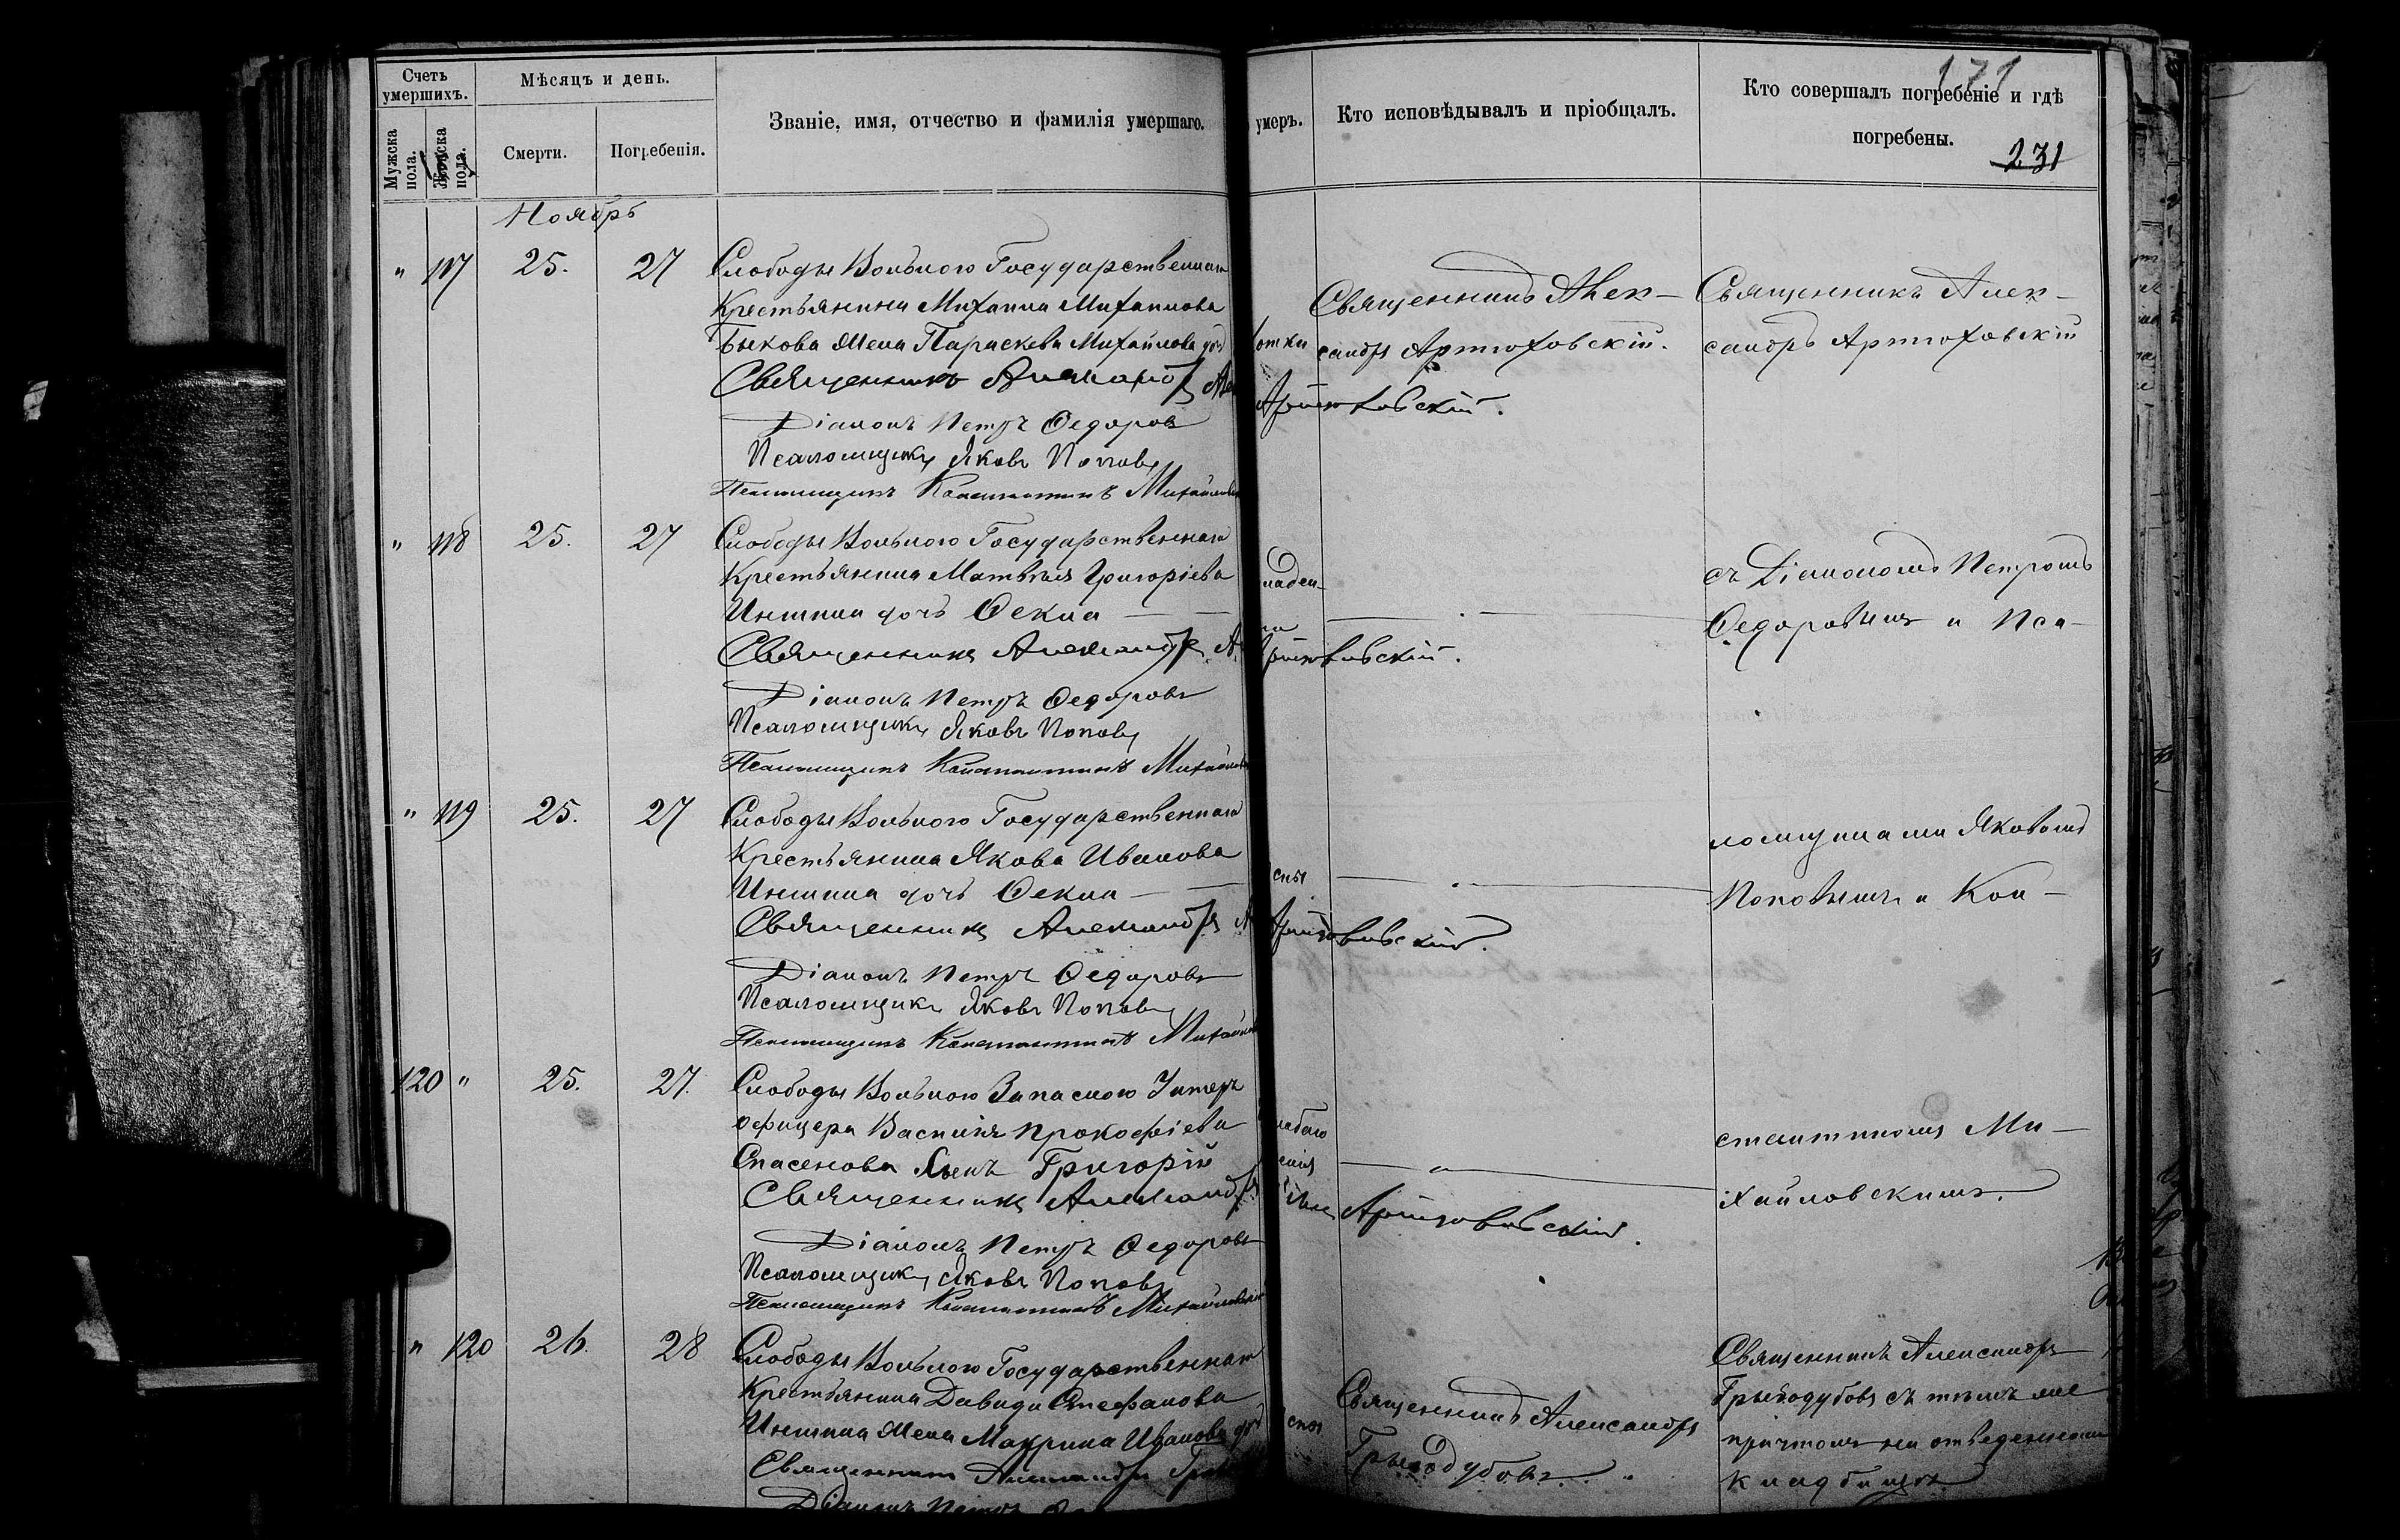 Счетъ умершихъ.
Мѣсяцъ и день.
Званіе, имя, отчество и фамилія умершаго.
Мужска пола.
Женска пола.
Смерти.
Погребенія.
Ноябрь
" 117 25. 27 Слободы Вольного Государственнаго
Крестьянина Михаила Михаилова
Быкова жена Параскева Михайлова
Священникъ Александръ
Діаконъ Петръ Ѳедоровъ
Псаломщикъ Яковъ Поповъ
Псаломщикъ Константинъ Михайловскій
" 118 25. 27 Слободы Вольного Государственнаго
Крестьянина Матвѣя Григоріева
дочь Ѳекла
Священникъ Александръ
Діаконъ Петръ Ѳедоровъ
Псаломщикъ Яковъ Поповъ
Псаломщикъ Константинъ Михайловскій
" 119 25. 27 Слободы Вольного Государственнаго
Крестьянина Якова Иванова
дочь Ѳекла
Священникъ Александръ
Діаконъ Петръ Ѳедоровъ
Псаломщикъ Яковъ Поповъ
Псаломщикъ Константинъ Михайловскій
120 " 25. 27. Слободы Вольного Запасного Унтеръ
офицера Василія Прокофіева
Спасенова сынъ Григорій
Священникъ Александръ
Діаконъ Петръ Ѳедоровъ
Псаломщикъ Яковъ Поповъ
Псаломщикъ Константинъ Михайловскій
" 120 26. 28 Слободы Вольного Государственнаго
Крестьянина Давида Стефанова
жена Макрина Иванова
Священникъ Александръ
Діаконъ Петръ
умеръ.
Кто исповѣдывалъ и пріобщалъ.
Кто совершалъ погребеніе и гдѣ
погребены.
171
231
Священникъ Алек-
сандръ Артюховскій.
Артюховскій.
Артюховскій.
Артюховскій.
Артюховскій.
Священникъ Александръ
Грекодубовъ.
Священникъ Алек-
сандръ Артюховскій
съ Діакономъ Петромъ
Ѳедоровымъ и Пса-
ломщиками Яковомъ
Поповымъ и Кон-
стантиномъ Ми-
хайловскимъ.
Священникъ Александръ
Грекодубовъ съ тѣмъ же
причтомъ на отведенномъ
кладбищѣ